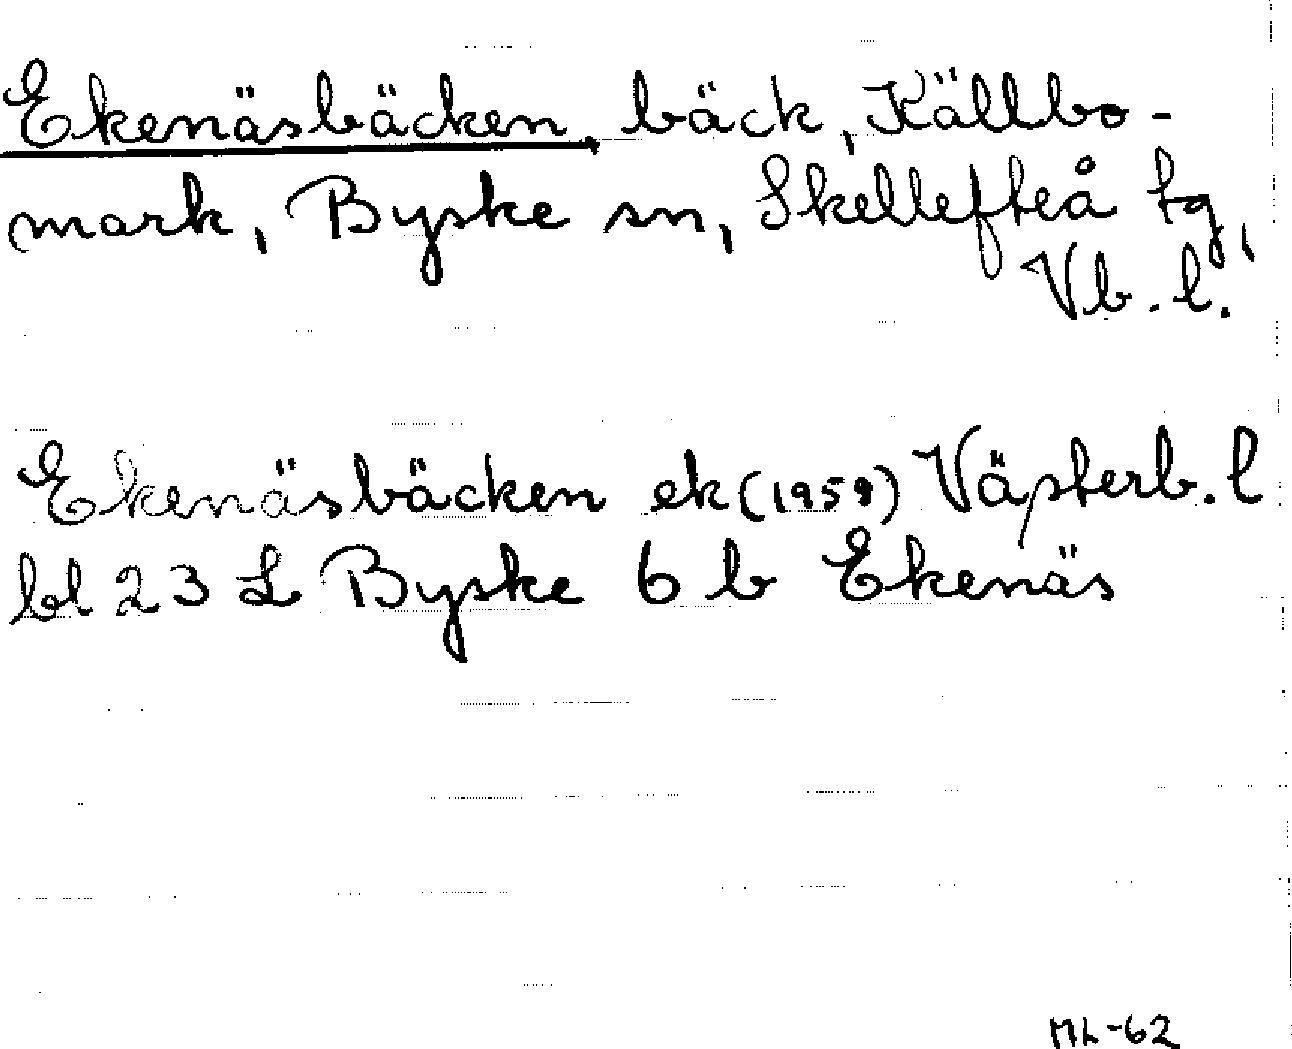 Ekenäsbäcken, bäck, Källbo-
mark, Byske sn, Skellefteå tg,
Vb. l.
Ekenäsbäcken ek (1959) Västerb. l
bl 23 L Byske 6 b Ekenäs
ML-62